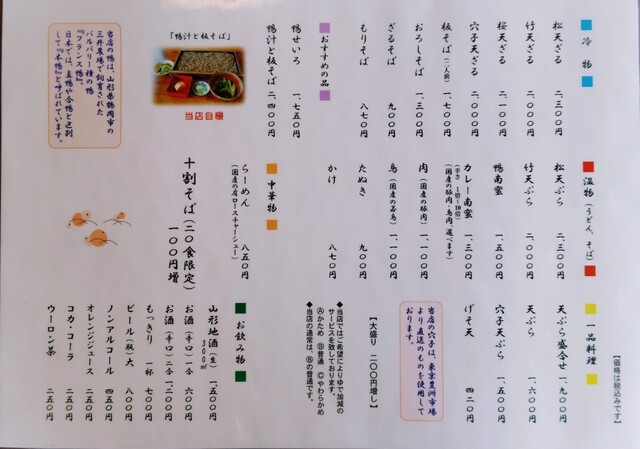 冷物
松天ざる 二、三〇〇円
竹天ざる 二、〇〇〇円
桜天ざる 二、一〇〇円
穴子天ざる 二、〇〇〇円
板そば(二人前) 一、七〇〇円
おろしそば 一、三〇〇円
ざるそば 九〇〇円
もりそば 八七〇円
おすすめの品
鴨せいろ 一、七五〇円
鴨汁と板そば 二、四〇〇円
「鴨汁と板そば」
当店自慢
当店の鴨は、山形県鶴岡市の
三井農場で飼育された
バルバリー種の鴨
『フランス鴨』。
日本では、真鴨や合鴨と区別
して『本鴨』と呼ばれています。
温物(うどん、そば)
松天ぷら 二、三〇〇円
竹天ぷら 二、〇〇〇円
鴨南蛮 一、五〇〇円
カレー南蛮 一、三〇〇円
(辛さ 1倍~10倍)
(国産の豚肉・鳥肉、選べます)
肉(国産の豚肉) 一、一〇〇円
鳥(国産の若鳥) 一、一〇〇円
たぬき 九〇〇円
かけ 八七〇円
中華物
らーめん 八五〇円
(国産の肩ロースチャーシュー)
十割そば(二〇食限定)
一〇〇円増
【価格は税込みです】
一品料理
天ぷら盛合せ 一、九〇〇円
天ぷら 一、六〇〇円
穴子天ぷら 一、五〇〇円
げそ天 四二〇円
当店の穴子は、東京豊洲市場
より直送のものを使用して
おります。
【大盛り 二〇〇円増し】
◆当店ではご希望によりゆで加減の
サービスを致しております。
Ⓐかため Ⓑ普通 Ⓒやわらかめ
◆当店の通常は、Ⓑの普通です。
お飲み物
山形地酒(生) 一、五〇〇円
300ml
お酒(辛口)一合 六〇〇円
お酒(辛口)二合 一、二〇〇円
もっきり 一杯 七〇〇円
ビール(瓶)大 八〇〇円
ノンアルコール 四五〇円
オレンジジュース 二五〇円
コカ・コーラ 二五〇円
ウーロン茶 二五〇円